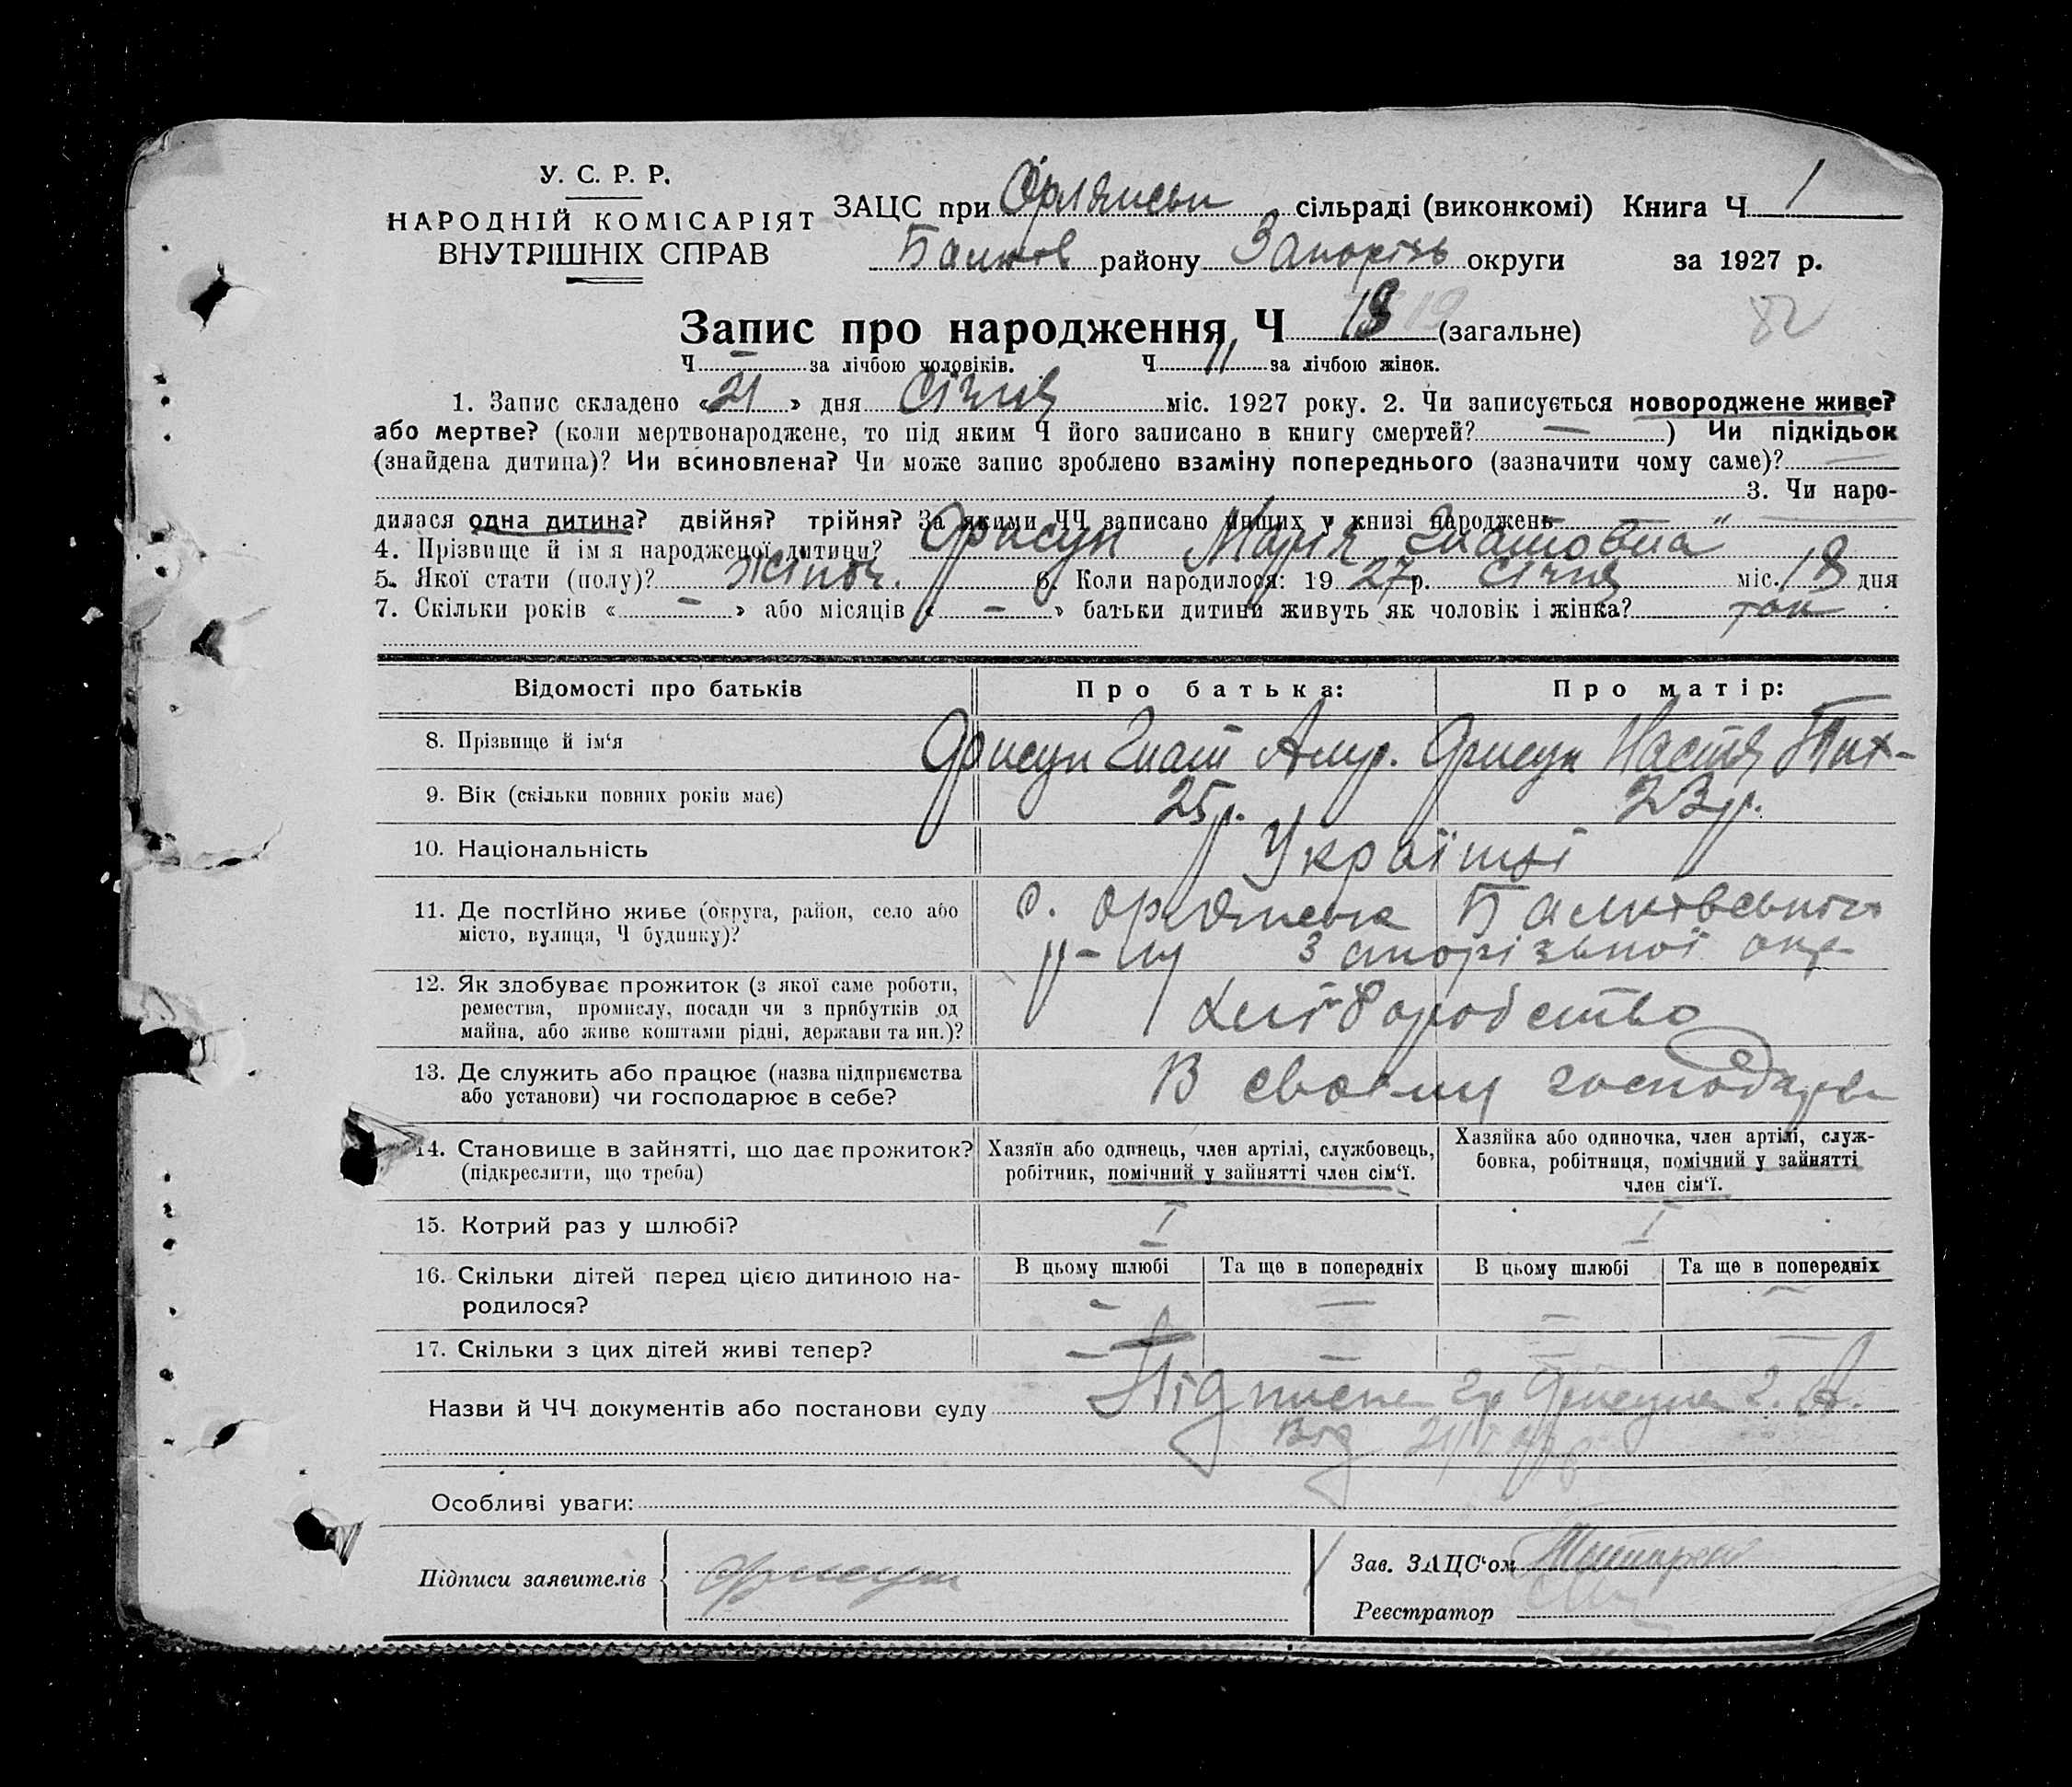 У. С. Р. Р.
НАРОДНІЙ КОМІСАРІЯТ
ВНУТРІШНІХ СПРАВ
ЗАЦС при Орлянськ сільраді (виконкомі) Книга Ч 1
району Запорізь округи за 1927 р.
Запис про народження Ч (загальне)
Ч — за лічбою чоловіків. Ч 11 за лічбою жінок.
1. Запис складено «21» дня Січня міс. 1927 року. 2. Чи записується новороджене живе?
або мертве? (коли мертвонароджене, то під яким Ч його записано в книгу смертей? — ) Чи підкідьок
(знайдена дитина)? Чи всиновлена? Чи може запис зроблено взаміну попереднього (зазначити чому саме)? —
3. Чи наро-
дилася одна дитина? двійня? трійня? За якими ЧЧ записано инших у книзі народжень
4. Прізвище й ім я народженої дитини? Фрисун Марія Гнатовна
5. Якої стати (полу)? жіноч. 6. Коли народилося: 19 27 р. січня міс. 18 дня
7. Скільки років « – » або місяців « – » батьки дитини живуть як чоловік і жінка? так
Відомості про батьків Про батька: Про матір:
8. Прізвище й ім‘я Фрисун Гнат Фрисун Настя Тих-
9. Вік (скільки повних років має) 25 р. 23 р.
10. Національність Українці
11. Де постІйно живе (округа, район, село або
місто, вулиця, Ч будинку)?
с. Орлянська
р-ну Запорізької окр
12. Як здобуває прожиток (з якої саме роботи,
ремества, промислу, посади чи з прибутків од
майна, або живе коштами рідні, держави та ин.)?
Хліборобство
13. Де служить або працює (назва підприємства
або установи) чи господарює в себе?
В своєму господарстві
14. Становище в зайнятті, що дає прожиток?
(підкреслити, що треба)
Хазяїн або одинець, член артілі, службовець,
робітник, помічний у зайнятті член сім‘ї.
Хазяйка або одиночка, член артілі, служ-
бовка, робітниця, помічний у зайнятті
член сім‘ї.
15. Котрий раз у шлюбі? I I
16. Скільки дітей перед цією дитиною на-
родилося?
В цьому шлюбі Та ще в попередніх В цьому шлюбі Та ще в попередніх
– — — —
17. Скільки з цих дітей живі тепер? – — — —
Назви й ЧЧ документів або постанови суду Підписка гр Фрисуна Г. А.
Від
Особливі уваги:
Підписи заявителів Фрисун
Зав. ЗАЦС‘ом
Реєстратор